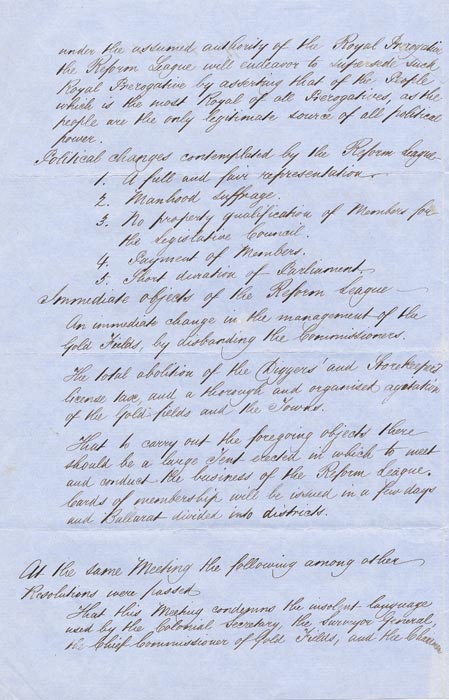 under the assumed authority of the Royal Prerogative
the Reform League will endeavor to supersede such
Royal Prerogative by asserting that of the People
which is the most Royal of all Prerogatives, as the
people are the only legitimate source of all political
power.
Political changes contemplated by the Reform League
1. A full and fair representation
2. Manhood suffrage.
3. No property qualification of Members for
the Legislative Council.
4. Payment of Members.
5. Short duration of Parliament.
Immediate objects of the Reform League
An immediate change in the management of the
Gold Fields, by disbanding the Commissioners.
The total abolition of the Diggers' and Storekeepers'
license tax, and a thorough and organised agitation
of the Gold fields and the Towns.
That to carry out the foregoing objects there
should be a large Tent erected in which to meet
and conduct the business of the Reform League.
Cards of membership will be issued in a few days
and Ballarat divided into districts.
At the same Meeting the following among other
Resolutions were passed
That this Meeting condemns the insolent language
used by the Colonial Secretary, the Surveyor General,
the Chief Commissioner of Gold Fields, and the